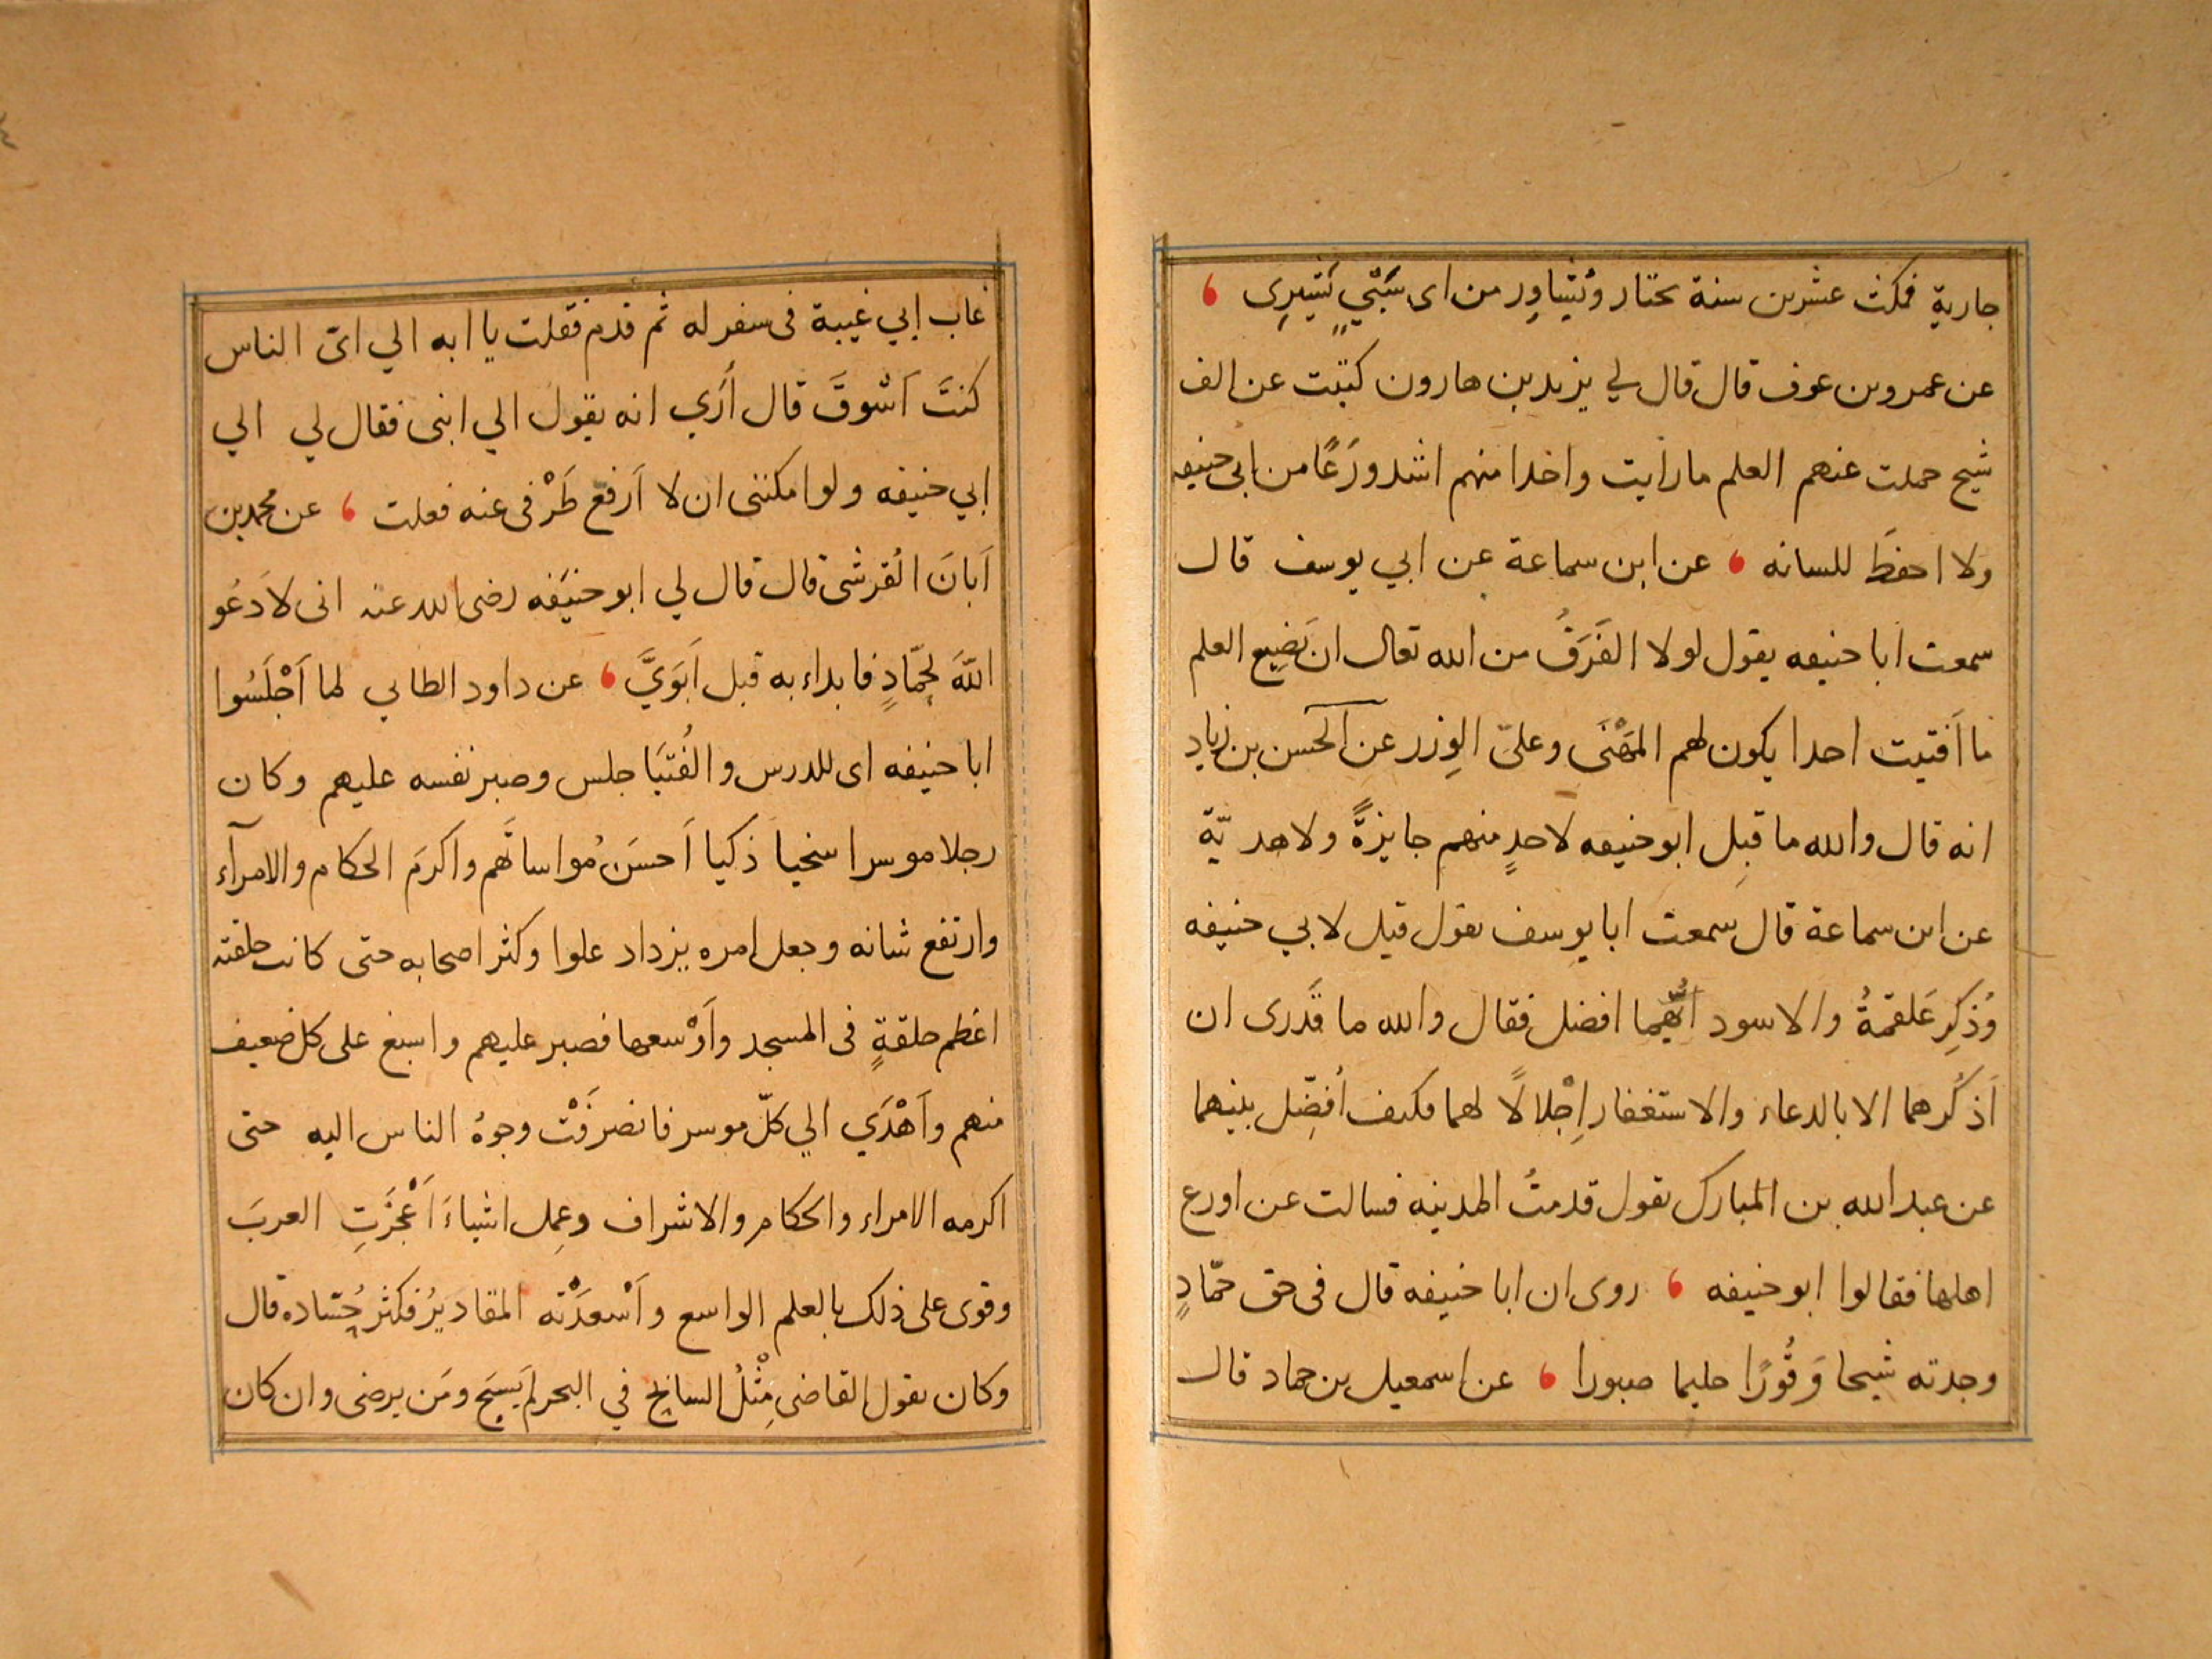 جارية فمكث عشرين سنة يختار ويشاور من اى سَبْيٍ يَشتَرِى
عن عمرو بن عوف قال قال لي يزيد بن هارون كتبت عن الف
شيخ حملت عنهم العلم ما رأيت واحدا منهم اشد ورَعًا من ابى حنيفه
ولا احفظَ للسانه عن ابن سماعة عن ابي يوسف قال
سمعت ابا حنيفه يقول لولا الفَرَقُ من الله تعالى ان يَضِيع العلم
ما اَفتيت احدا يكون لهم المَهْنَى وعليّ الوِزر عن الحسن بن زياد
انه قال والله ما قبِل ابو حنيفه لاحدٍ منهم جايزةً ولا هديّة
عن ابن سماعة قال سمعت ابا يوسف يقول قيل لابي حنيفه
وُذكِر عَلقمةُ والاسود اَيُّهما افضل فقال والله ما قَدرى ان
اَذكُرهما الا بالدعاء والاستغفار اِجْلالًا لهما فكيف اُفضِّل بينهما
عن عبد الله بن المبارك يقول قدمتُ المدينه فسالت عن اورع
اهلها فقالوا ابو حنيفه روى ان ابا حنيفه قال فى حق حمّادٍ
وجدته شيخا وَقُورًا حليما صبورا عن اسمعيل بن حماد قال
غاب ابي غيبة فى سفر له ثم قدم فقلت يا ابه الي اىّ الناس
كنتَ اَشْوقَ قال أُرَي انه يقول الي ابنى فقال لي الي
ابي حنيفه ولو امكننى ان لا اَرفع طَرْفى عنه فعلت عن محمد بن
اَبانَ القُرشى قال قال لي ابو حنيَفه رضى الله عنه انى لادَعُو
اللهَ لِحمّادٍ فابداء به قبل اَبَوَيَّ عن داود الطاى لما اَجْلَسُوا
ابا حنيفه اى للدرس والفُتيَا جلس وصبر نفسه عليهم وكان
رجلا موسرا سخيا ذكيا اَحسَنَ مُواساتَهم واكرمَ الحكام والامرآء
وارتفع شانه وجعل امره يزداد علوا وكثر اصحابه حتى كانت حلقته
اعظم حلقةٍ فى المسجد واَوْسعها فصبر عليهم واسبغ على كل ضعيف
منهم واَهْدَي الي كلّ موسر فانصرَفَتْ وجوهُ الناس اليه حتى
اكرمه الامراء والحكام والاشراف وعِمل اشياءَ اَعْجَزَتِ العربَ
وقوى على ذلك بالعلم الواسع واَسْعدَتْه المقاديرُ فكثر حُسّاده قال
وكان يقول القاضى مِثْلُ السابح في البحر لم يَسبَح ومَن يرضى وان كان